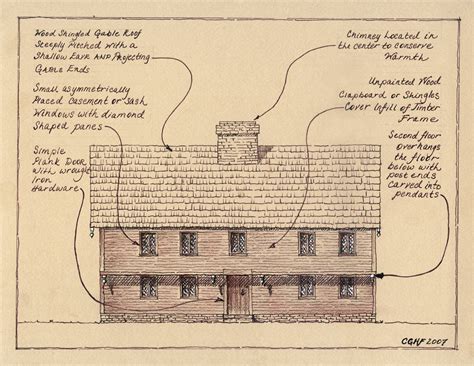 Wood Shingled Gable Roof
Steeply Pitched with a
Shallow Eave and Projecting
Gable Ends
Small asymmetrically
Placed Basement or Sash
Windows with diamond
Shaped panes
Simple
Plank Door
with wrought
Iron
Hardware
Chimney Located in
the center to conserve
Warmth
Unpainted Wood
Clapboard or Shingles
Cover Infill of Timber
Frame
Second floor
overhangs
the floor
below with
post ends
Carved into
pendants
CGHF 2007